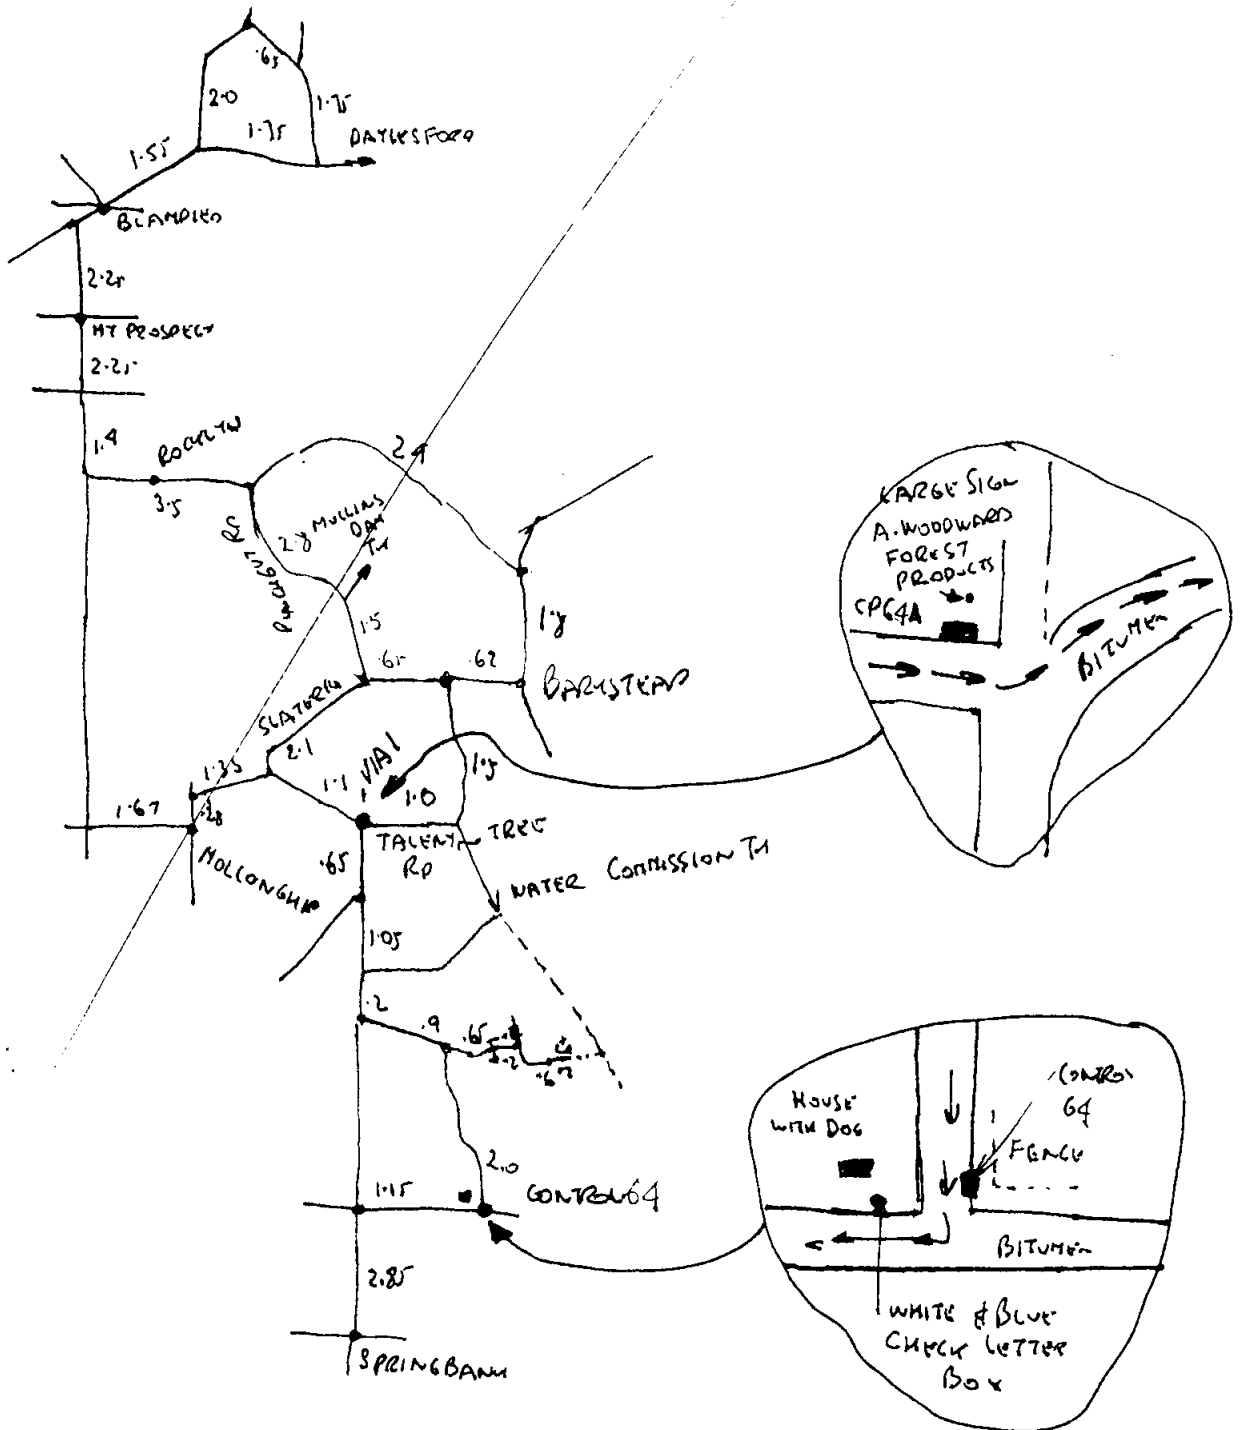 .65
2.0
1.75
1.75
DAYLESFORD
1.55
BLAMPIED
2.25
MT PROSPECT
2.25
1.4
ROCKLYN
3.5
2.8
MULLINS
DAM
TK
1.5
1.8
.65
.62
BARKSTEAD
SLATERS
2.1
1.35
1.1
VIA 1
1.0
1.5
1.67
.28
MOLLONGHIP
TALENT TREE
RD
.65
WATER COMMISSION TK
1.05
.2
.9
.65
2.0
1.15
CONTROL 64
2.85
SPRINGBANK
LARGE SIGN
A. WOODWARD
FOREST
PRODUCTS
CP64A
BITUMEN
HOUSE
WITH DOG
CONTROL
64
FENCE
BITUMEN
WHITE & BLUE
CHECK LETTER
BOX